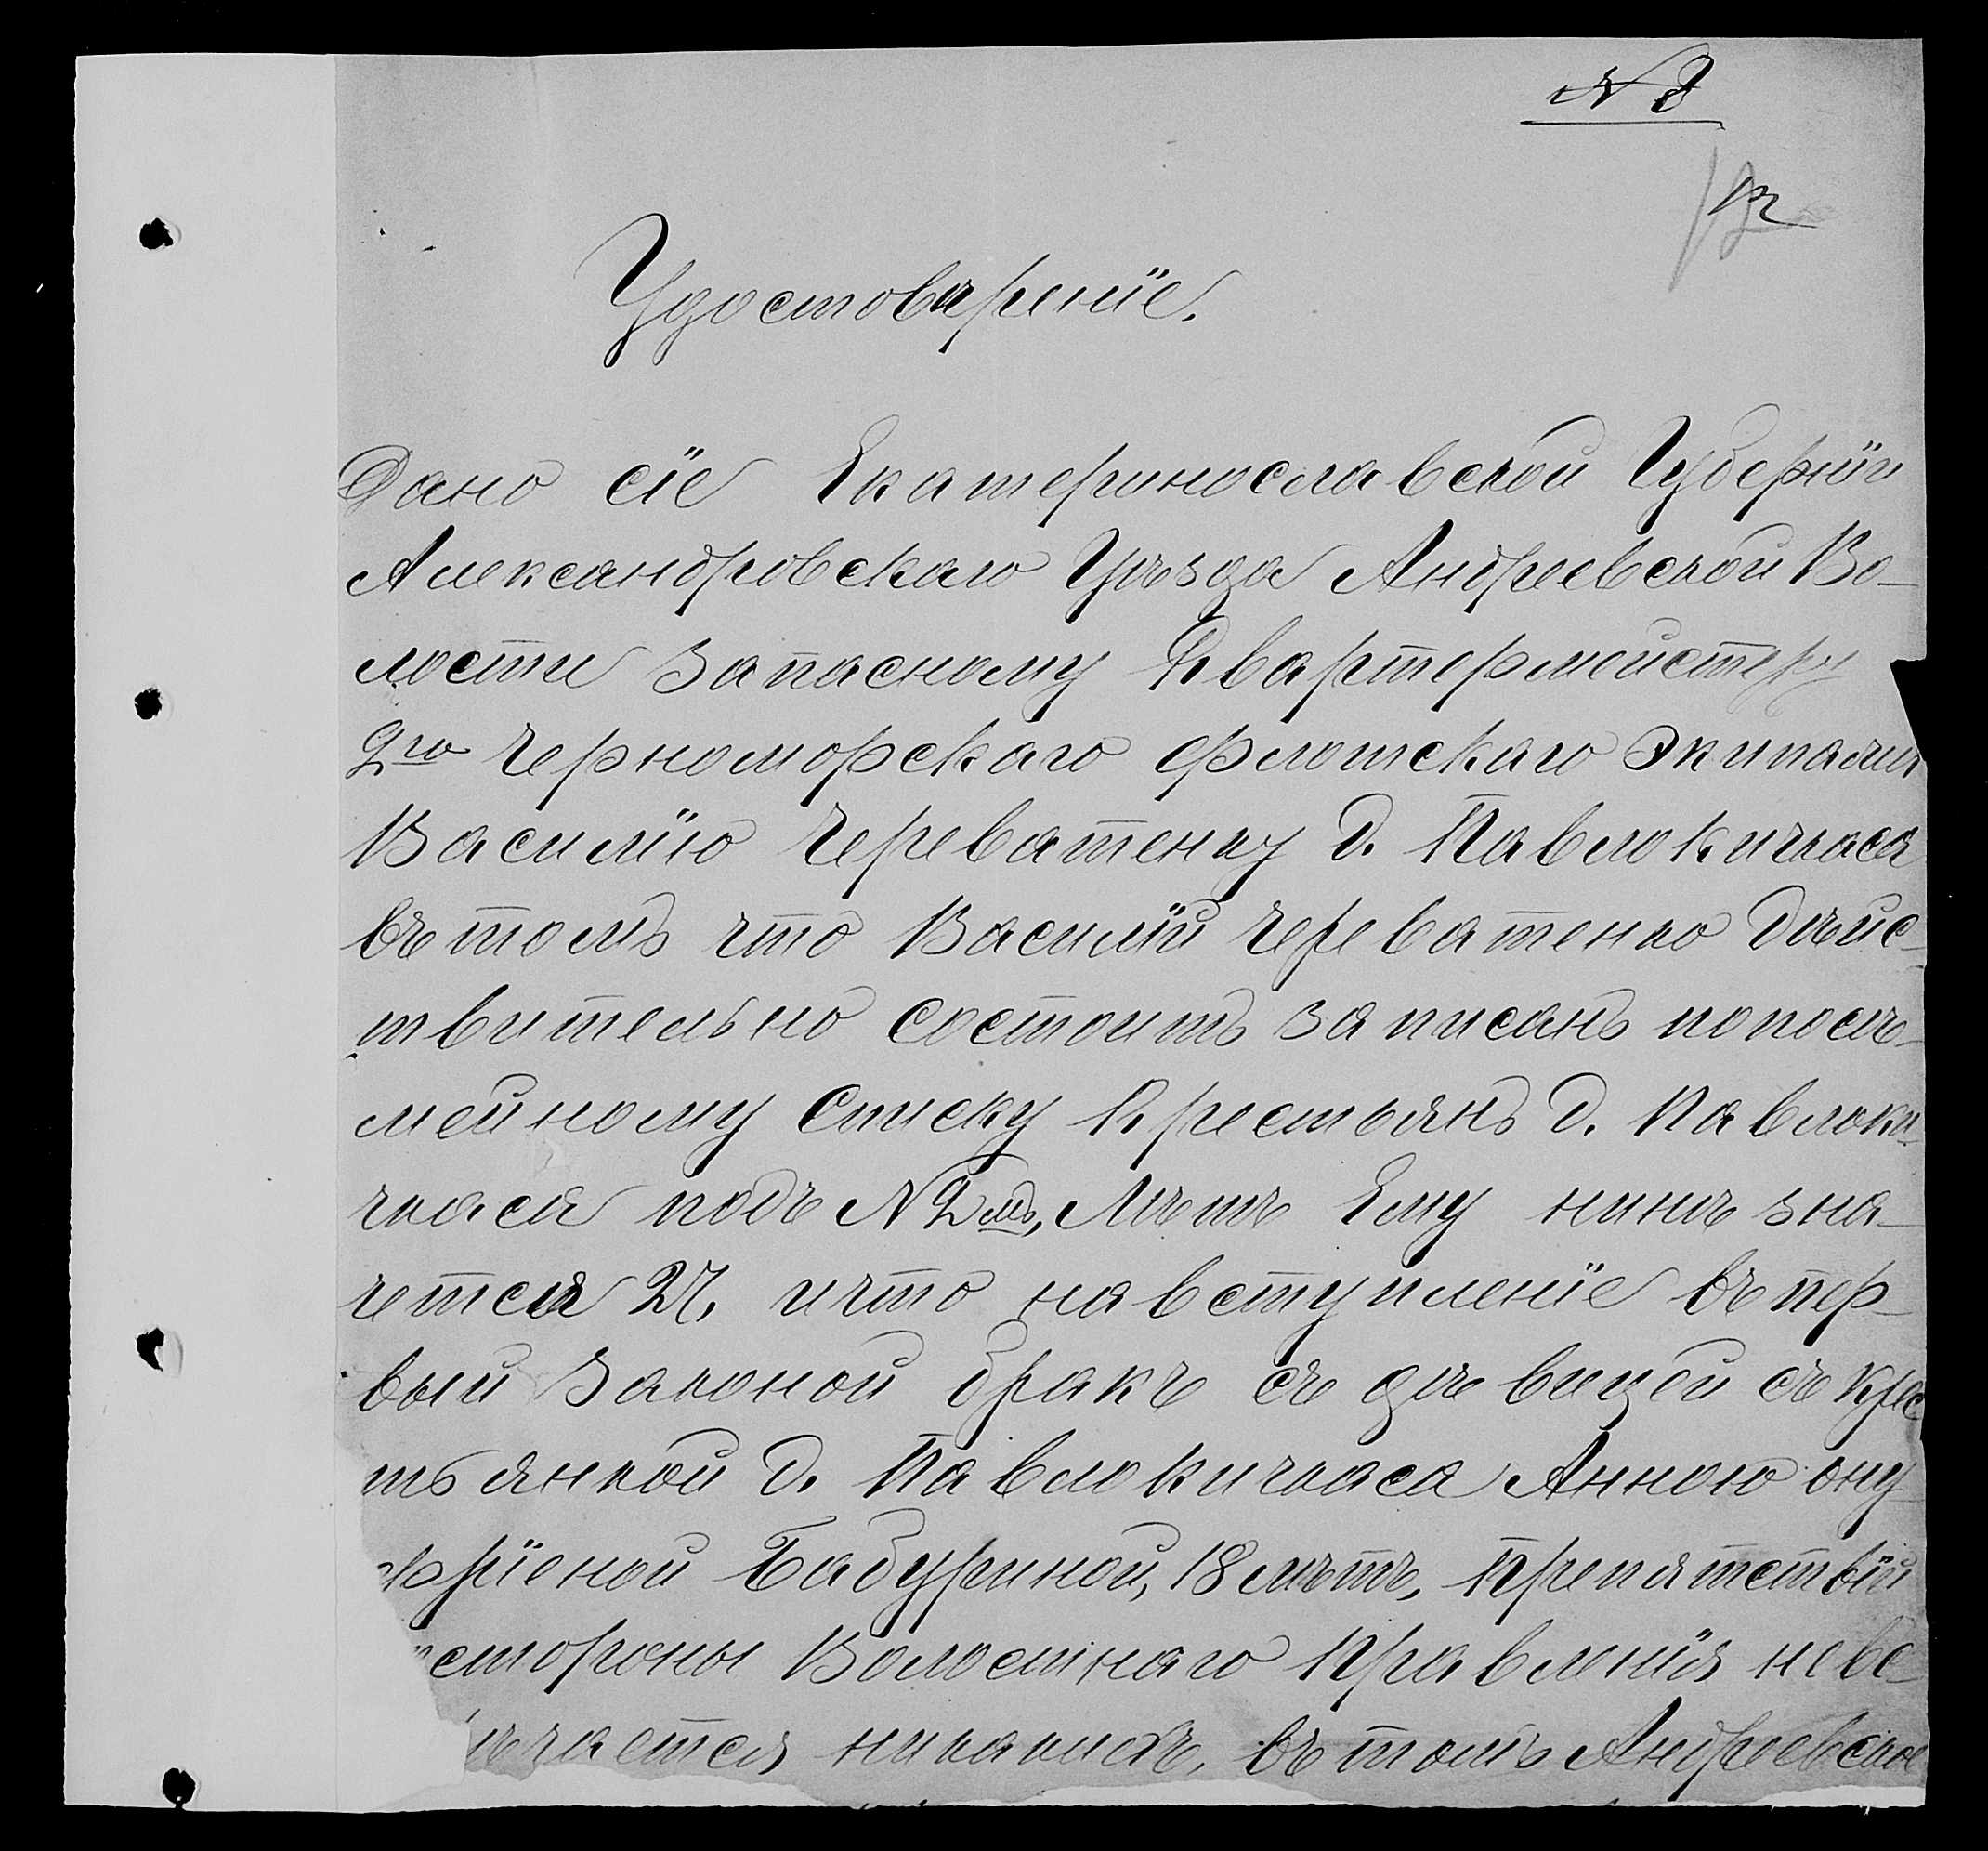 № 8
12
Удостовѣреніе.
Дано сіе Екатеринославской Губерніи
Александровскаго Уѣзда Андреевской Во-
лости запасному Квартермейстеру
2го Черноморскаго флотскаго Экипажа
Василію Череватенку д. Павлокичкаса
въ томъ что Василій Череватенко дѣйс-
твительно состоитъ записанъ попосѣ-
мейному списку Крестьянъ д. Павлоки-
чкаса подъ № 2мъ, Лѣтъ Ему нинѣ зна-
чется 27, ичто на вступленіе въ пер-
вый законой бракъ съ дѣвицей съ крес
тьянкой д. Павлокичкаса Анною ону-
фріеной Бабуриной, 18 лѣтъ, Препятствій
стороны Волостнаго Правленія неве-
ѣчается никакихъ, въ томъ Андреевское